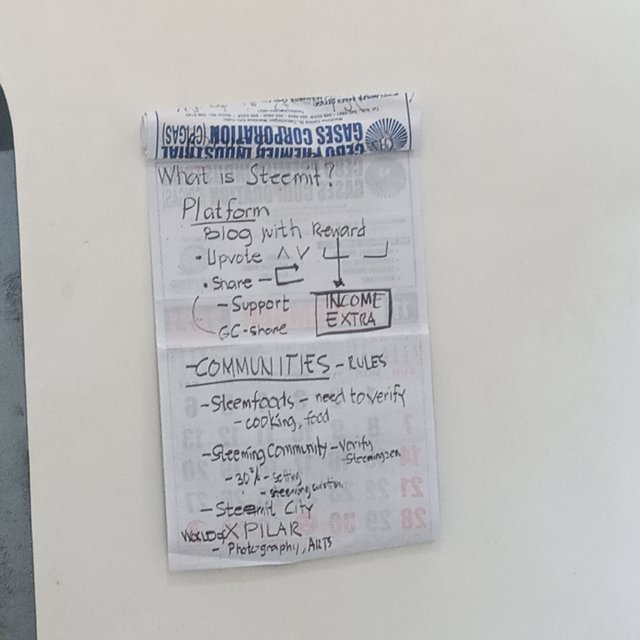 CEBU PREMIER INDUSTRIAL
GASES CORPORATION (CPIGAS)
What is Steemit?
Platform
Blog with Reward
• Upvote
• Share -
- Support
GC-share
INCOME
EXTRA
- COMMUNITIES - RULES
- Steemfoods - need to verify
- cooking, food
- Steeming Community - Verify
- 30% -
- Steemit City
WORLD of XPILAR
- Photography, ARTS